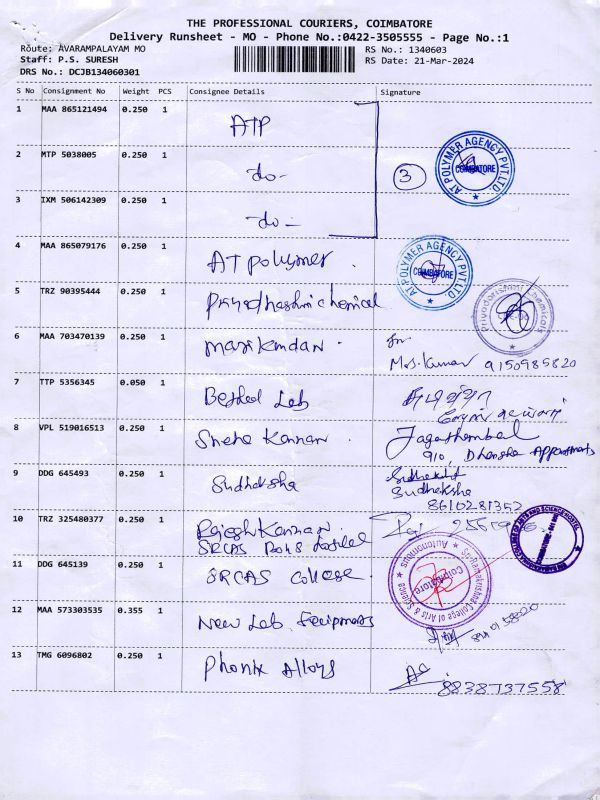 THE PROFESSIONAL COURIERS, COIMBATORE
Delivery Runsheet - MO - Phone No.:0422-3505555 - Page No.:1
Route: AVARAMPALAYAM MO
RS No.: 1340603
Staff: P.S. SURESH
RS Date: 21-Mar-2024
DRS No.: DCJB134060301
S No Consignment No Weight PCS Consignee Details Signature
1 MAA 865121494 0.250 1 ATP
2 MTP 5038005 0.250 1 -do-
3
AT POLYMER AGENCY PVT.LTD. COIMBATORE
3 IXM 506142309 0.250 1 -do-
4 MAA 865079176 0.250 1 AT polymer.
AT POLYMER AGENCY PVT.LTD. COIMBATORE
5 TRZ 90395444 0.250 1 Priyadharshini chemical
6 MAA 703470139 0.250 1 Manikandan.
M.S. Kumar 9150985820
7 TTP 5356345 0.050 1 Lab
8 VPL 519016513 0.250 1 Sneha Kannan.
910, Appartments
9 DDG 645493 0.250 1 Sudheksha
Sudheksha
8610281352
10 TRZ 325480377 0.250 1 Rajesh Kannan.
SRCAS Boys Hostel
11 DDG 645139 0.250 1 SRCAS College.
Sri Ramakrishna College of Arts & Science Autonomous Coimbatore
12 MAA 573303535 0.355 1 New Lab. Equipments
13 TMG 6096802 0.250 1 Phonix Alloys
8838737558